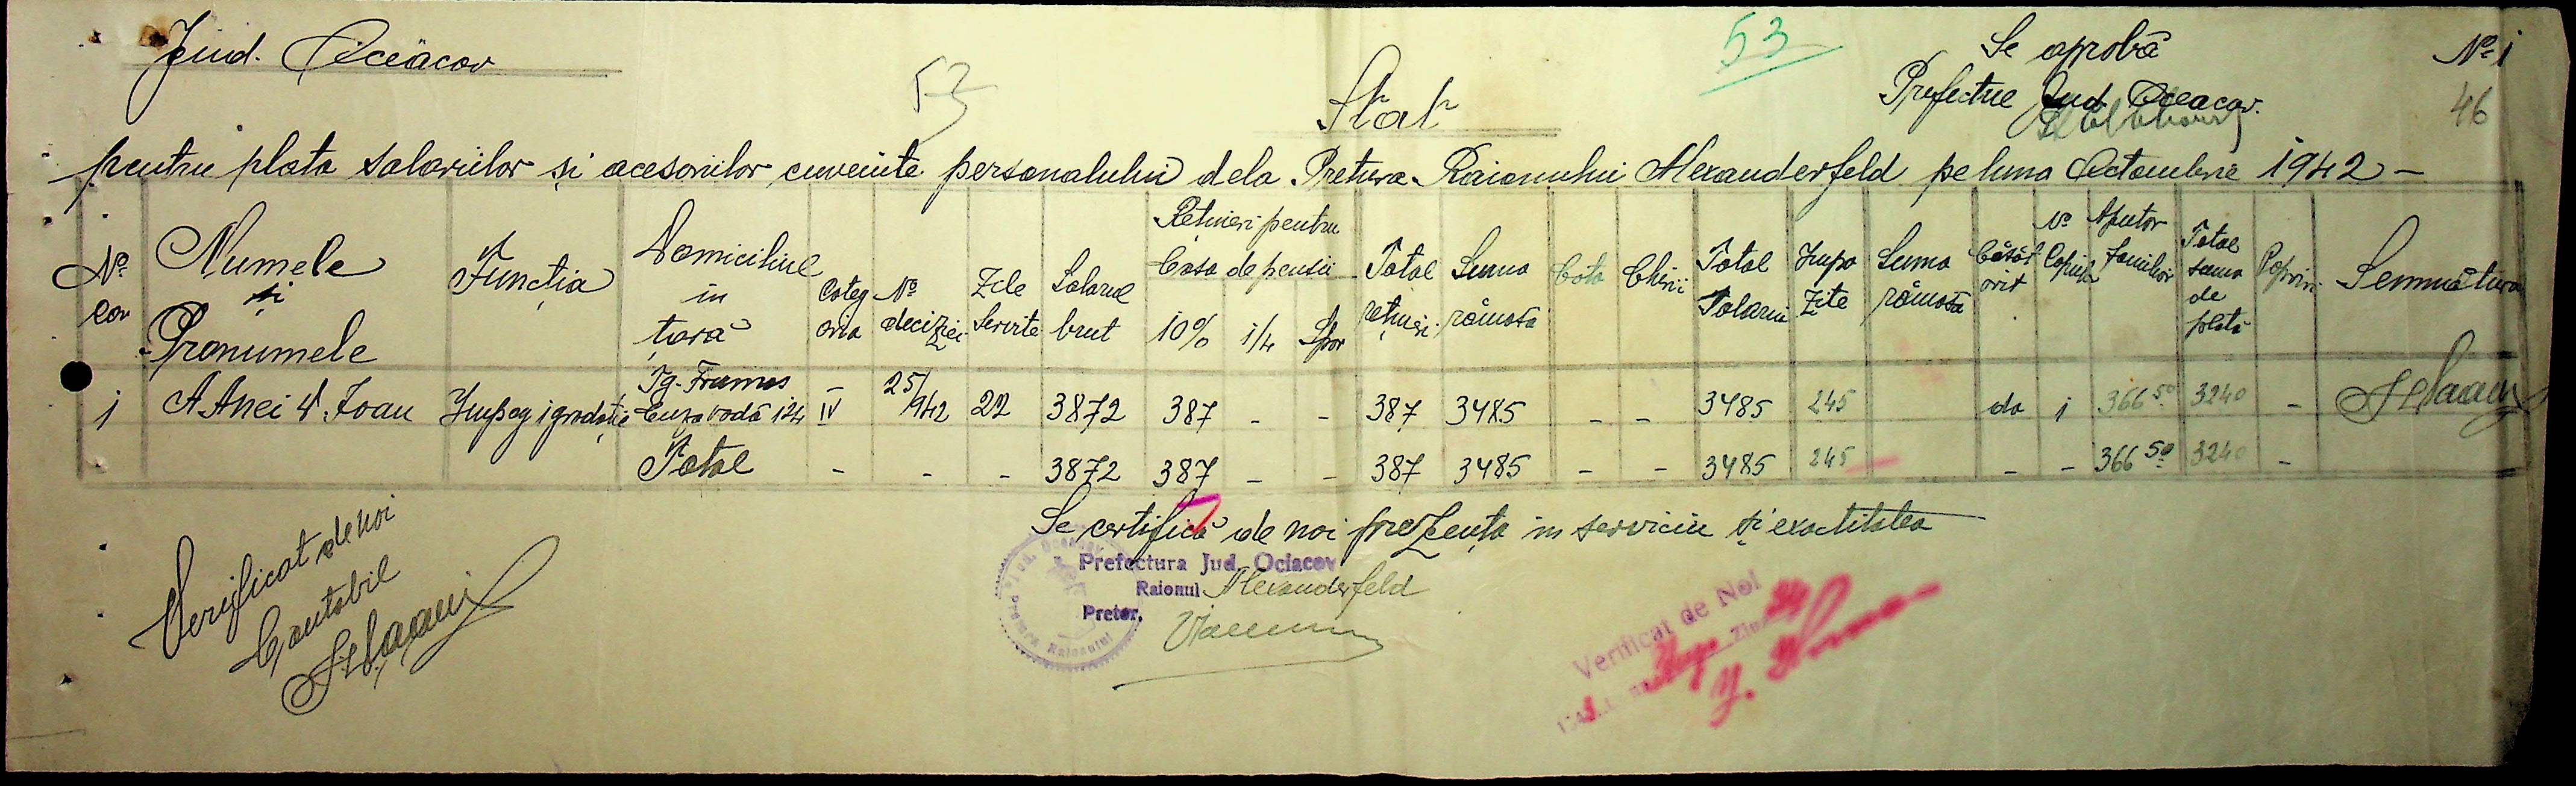 Jud. Oceacov
53
53
Se aprobă
Prefectue Jud. Oceacov.
No. 1
46
Stat
pentru plata salariilor și acesoriilor cuvenite personalului dela Pretura Raionului Alexanderfeld pe luna Octombrie 1942 -
No. Numele și Pronumele Funcția Domiciliul in țară Categ oria No. deciziei Zile Servite Salarul brut Rețineri pentru Casa de pensii 10% 1/4 Spor Total rețineri. Suma rămasă Cota Chirii Total Salariu Impo zite Suma rămasă Căsăt orit No. Copii Ajutor familiar Total suma de plată Popriri Semnătura
1 A Anei V. Ioan Impeg 1 gradație Tg. Frumos Cuza vodă 124 IV 25/942 22 3872 387 - - 387 3485 - - 3485 245 da 1 366 50 3240 -
Total - - - 3872 387 - - 387 3485 - - 3485 245 - - 366 50 3240 -
Se certifică de noi prezența in serviciu și exactitatea
Prefectura Jud. Ociacov
Raionul Alexanderfeld
Pretor,
Verificat de noi
Contabil
Verificat de Noi